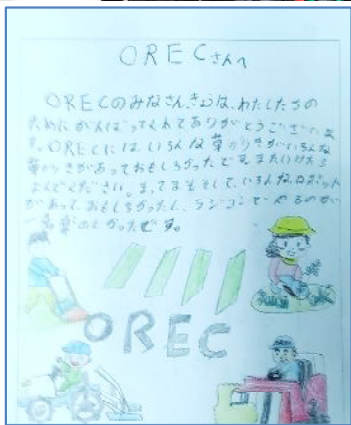 ORECさんへ
ORECのみなさん、きょうは、わたしたちの
ためにがんばってくれてありがとうございま
す。ORECにはいろんな草かりきがいろんな
草かりきがあっておもしろかったです。またいけたら
よんでください。いろんなロボット
があって、おもしろかったし、ラジコンでやるのが
一番楽のしかったです。
OREC